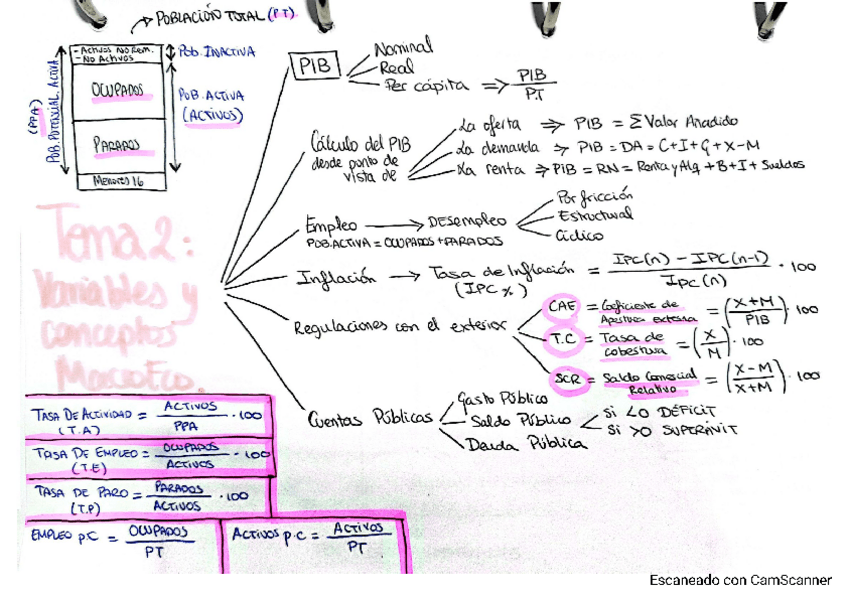 POBLACIÓN TOTAL (P.T)
- Activos No Rem.
- No Activos
OCUPADOS
PARADOS
Menores 16
POB. INACTIVA
POB. ACTIVA
(ACTIVOS)
(PPA)
POB. POTENCIAL. ACTIVA
Tema 2:
Variables y
conceptos
MacroEco.
PIB
Nominal
Real
Per cápita ⇒ PIB / PT
Cálculo del PIB
desde punto de
vista de
La oferta ⇒ PIB = Σ Valor Añadido
La demanda ⇒ PIB = DA = C+I+G+X-M
La renta ⇒ PIB = RN = Renta y Alq + B + I + Sueldos
Empleo → DESEMPLEO
POB. ACTIVA = OCUPADOS + PARADOS
Por fricción
Estructural
Cíclico
Inflación → Tasa de Inflación = IPC(n) - IPC(n-1) / IPC(n) · 100
(IPC %)
Regulaciones con el exterior
CAE = Coeficiente de Apertura externa = (X+M / PIB) · 100
T.C = Tasa de cobertura = (X / M) · 100
SCR = Saldo Comercial Relativo = (X-M / X+M) · 100
Cuentas Públicas
Gasto Público
Saldo Público
Si <0 DÉFICIT
Si >0 SUPERÁVIT
Deuda Pública
TASA DE ACTIVIDAD = ACTIVOS / PPA · 100
(T.A)
TASA DE EMPLEO = OCUPADOS / ACTIVOS · 100
(T.E)
TASA DE PARO = PARADOS / ACTIVOS · 100
(T.P)
EMPLEO p.C = OCUPADOS / PT
ACTIVOS p.C = ACTIVOS / PT
Escaneado con CamScanner